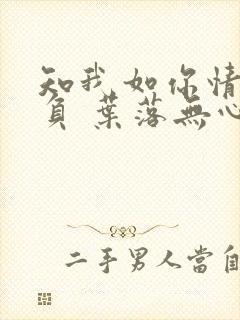 知我如你情
負 葉落無心
二手男人當自